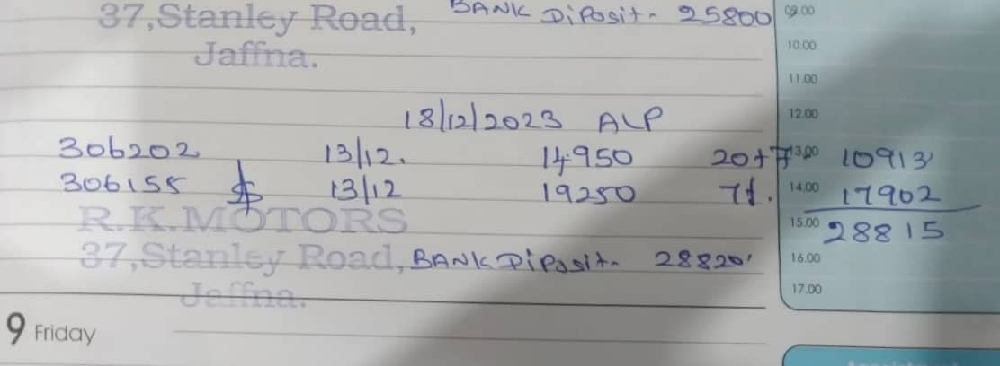 37,Stanley Road, BANK Diposit - 25800 09.00
Jaffna. 10.00
11.00
18/12/2023 ALP 12.00
306202 13/12. 14950 20+7 13.00 10913
306155 13/12 19250 7%. 14.00 17902
R.K.MOTORS 15.00 28815
37,Stanley Road, BANK Diposit - 28820 16.00
Jaffna. 17.00
9 Friday